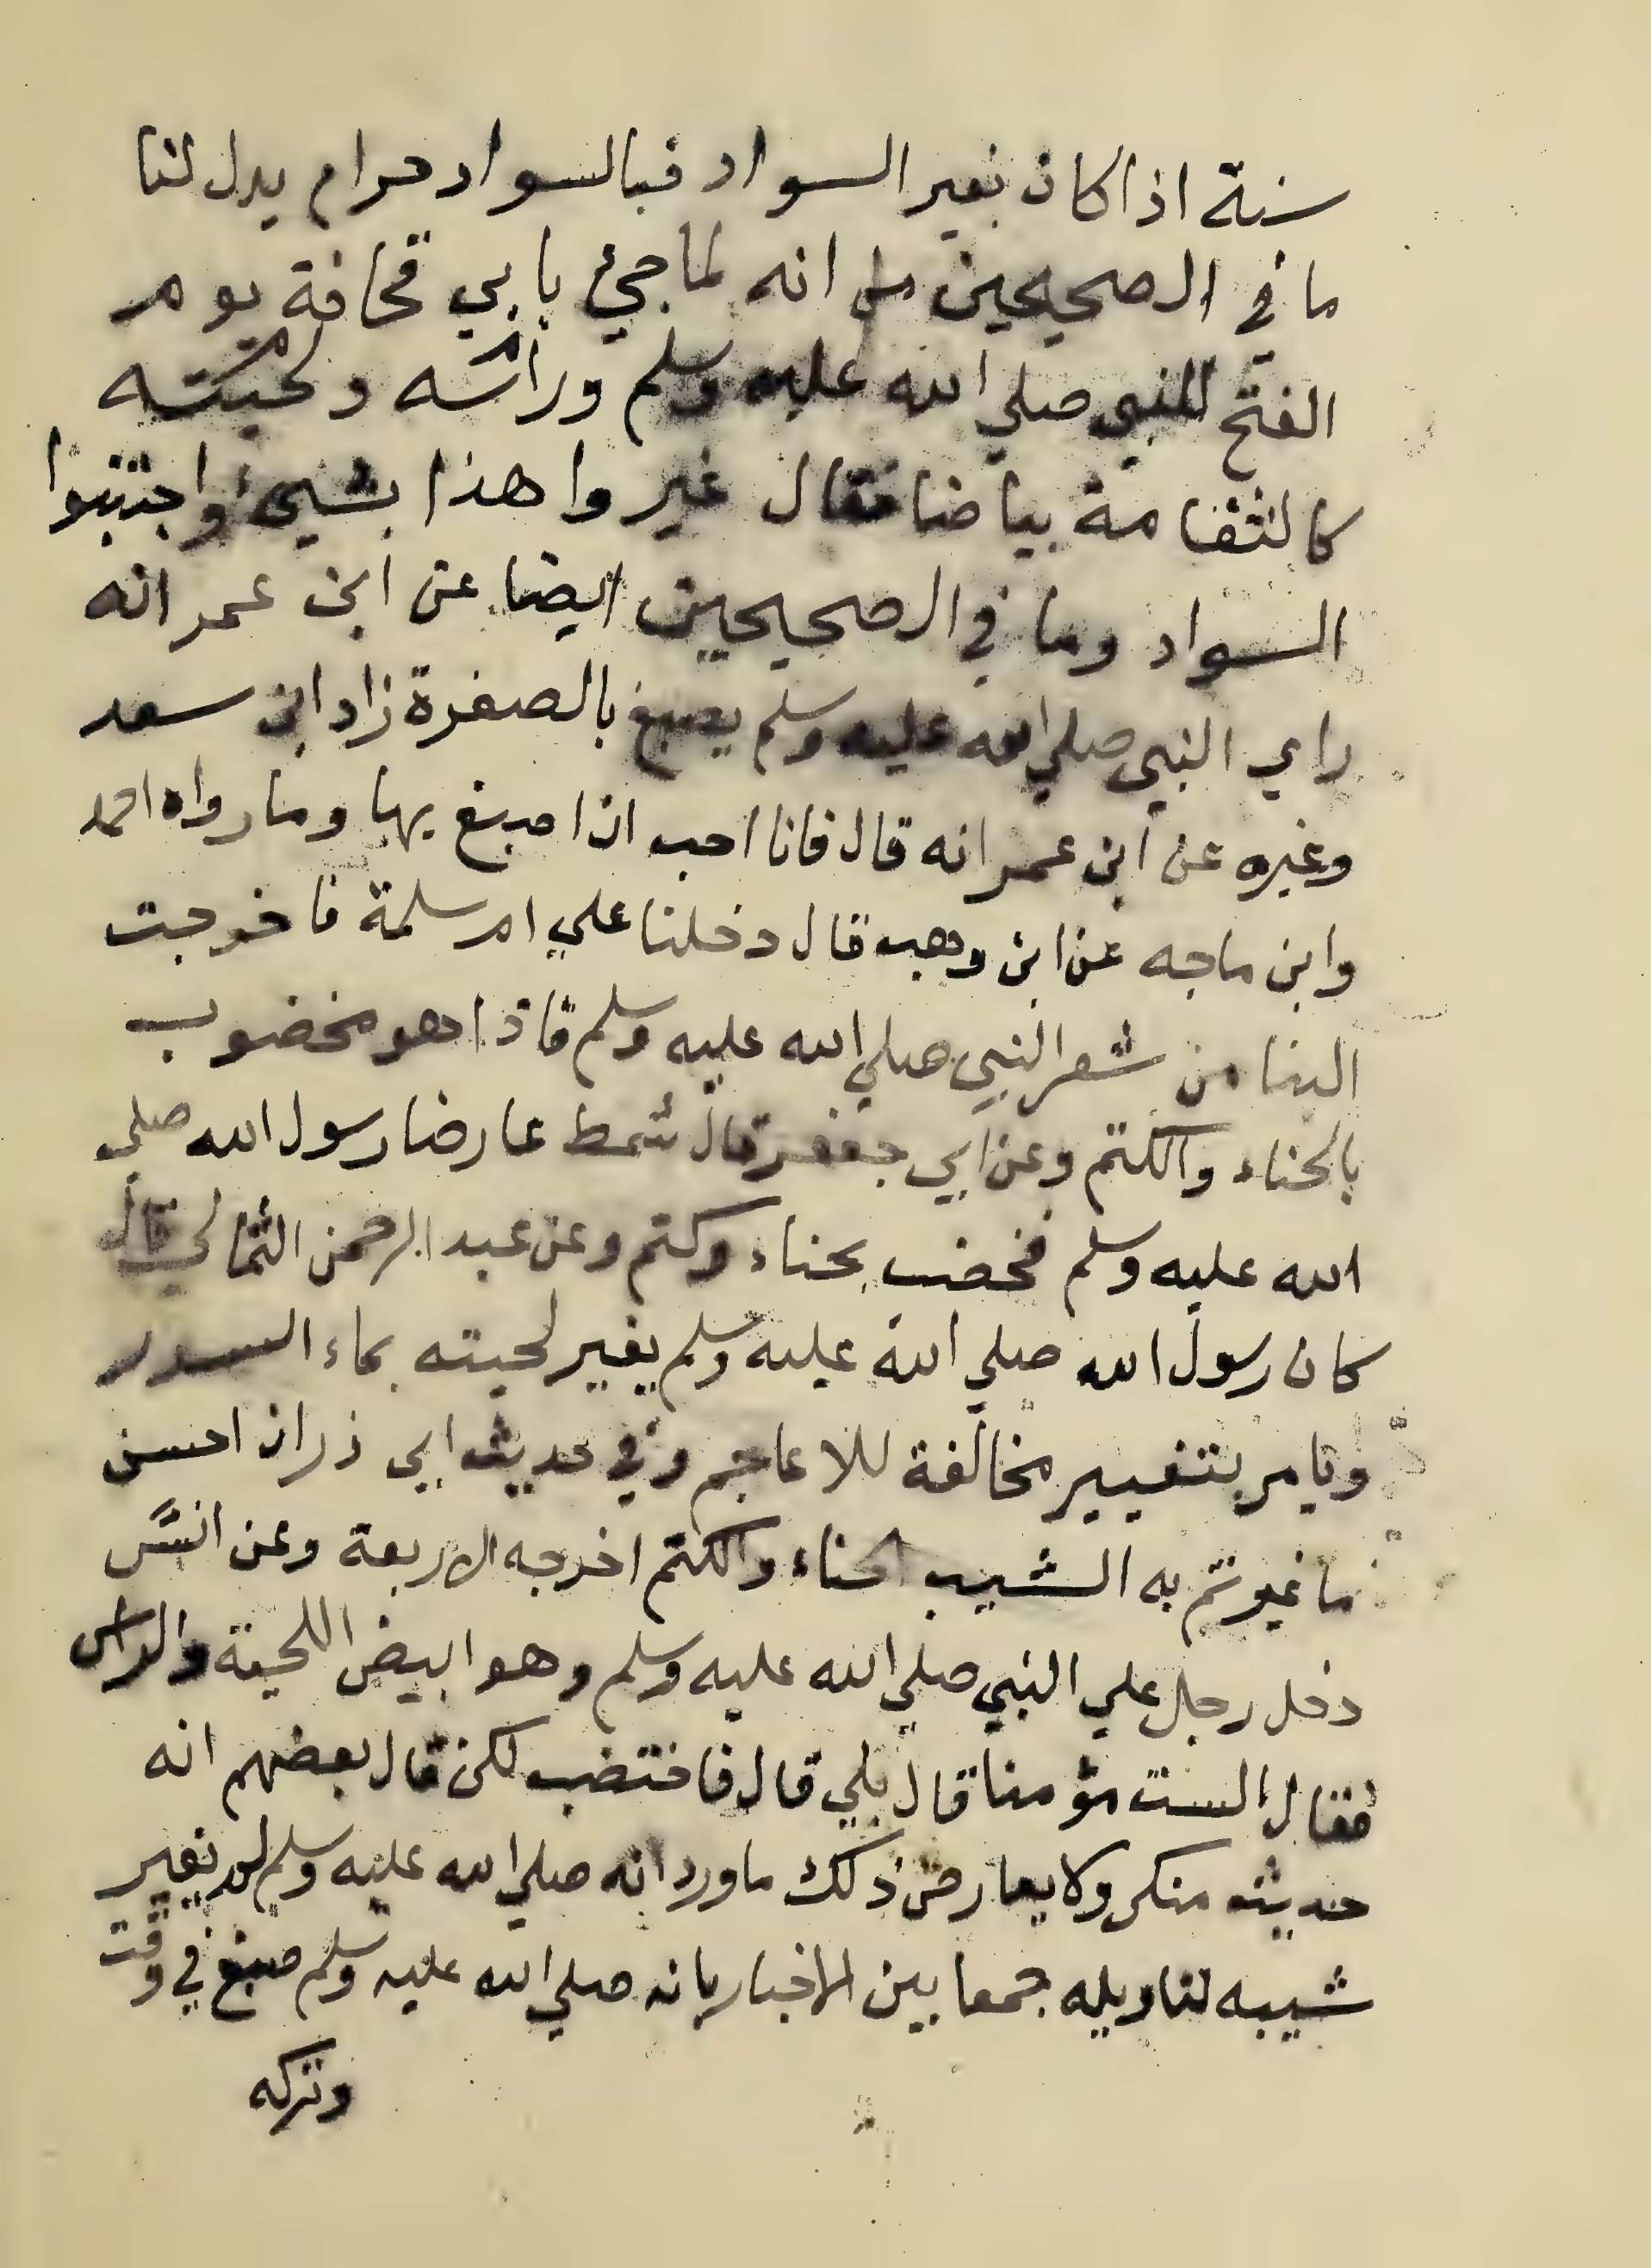 سنة اذا كان بغير السواد فبالسواد حرام يدل لنا
ما في الصحيحين انه لما جئ بابي قحافة يوم
الفتح للنبي صلي الله عليه وسلم ورأسه ولحيته
كالثغامة بياضا فقال غيروا هذا بشيئ واجتنبوا
السواد وما في الصحيحين ايضا عن ابن عمر انه
راي النبي صلي الله عليه وسلم يصبغ بالصفرة زاد ابن سعد
وغيره عن ابن عمر انه قال فانا احب ان اصبغ بها وما رواه احمد
وابن ماجه عن ابن وهب قال دخلنا علي ام سلمة فاخرجت
الينا من شعر النبي صلي الله عليه وسلم فاذا هو مخضوب
بالحناء والكتم وعن ابي جعفر قال شمط عارضا رسول الله صلي
الله عليه وسلم فخضب بحناء وكتم وعن عبد الرحمن الثمالي قال
كان رسول الله صلي الله عليه وسلم يغير لحيته بماء السدر
ويامر بتغيير مخالفة للاعاجم وفي حديث ابي ذر ان احسن
ما غيرتم به الشيب الحناء والكتم اخرجه الاربعة وعن انس
دخل رجل علي النبي صلي الله عليه وسلم وهو ابيض اللحية والراس
فقال الست مؤمنا قال بلي قال فاختضب لكن قال بعضهم انه
حديث منكر ولا يعارض ذلك ما ورد انه صلي الله عليه وسلم لم يغير
شيبه لتاويله جمعا بين الاخبار بانه صلي الله عليه وسلم صبغ في وقت
وتركه